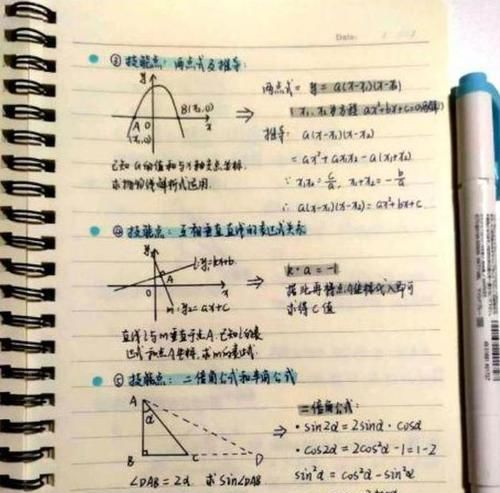 Date:
③ 技能点：两点式及推导：
y
A O B(x₂,0) x
(x₁,0)
已知a的值和与x轴交点坐标，
求抛物线解析式运用.
⇒
两点式= y = a(x-x₁)(x-x₂)
(x₁, x₂为方程 ax²+bx+c=0的解)
推导： a(x-x₁)(x-x₂)
= ax²+ax₁x₂-a(x₁+x₂)
∵ x₁x₂ = c/a, x₁+x₂ = -b/a
∴ a(x-x₁)(x-x₂) = ax²+bx+c
④ 技能点：互相垂直直线的表达式关系
y
l: y₁=kx+b
A
O x
m: y₂=ax+c
直线l与m垂直于点A.已知l的表
达式和点A坐标，求m的表达式.
⇒
k·a=-1
据此再将点A坐标代入即可
求得C值
⑤ 技能点：二倍角公式和半角公式
A
α
B C D
∠DAB=2α 求sin∠DAB
⇒
二倍角公式：
·sin2α=2sinα·cosα
·cos2α=2cos²α-1=1-2
sin²α=cos²α-sin²α